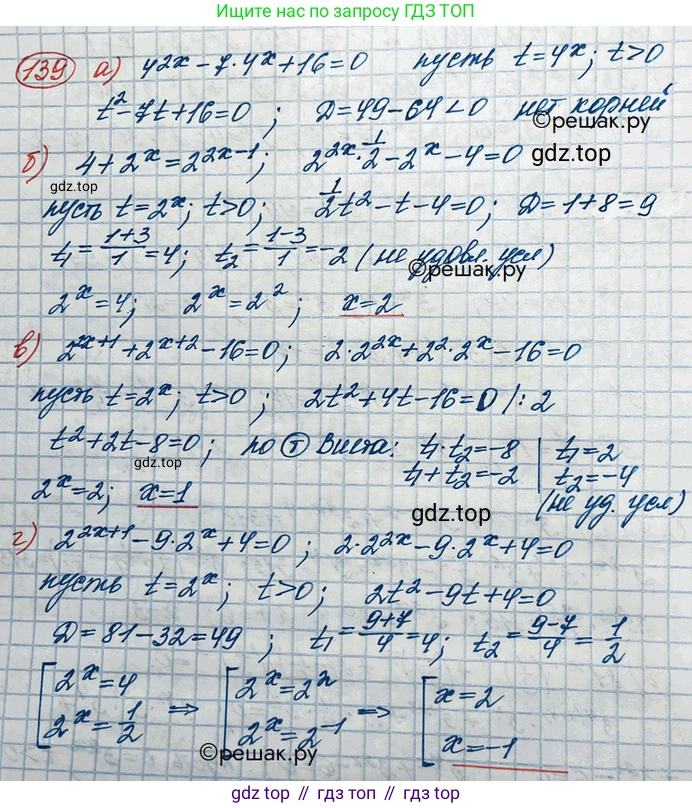 Пишите нам по запросу ГДЗ ТОП
139 а) 4^2x − 7·4^x + 16 = 0 пусть t = 4^x; t > 0
t² − 7t + 16 = 0; D = 49 − 64 < 0 нет корней
©решак.ру
б) 4 + 2^x = 2^2x−1; 2^2x · 1/2 − 2^x − 4 = 0
gdz.top
пусть t = 2^x; t > 0; 1/2 t² − t − 4 = 0; D = 1 + 8 = 9
t₁ = (1+3)/1 = 4; t₂ = (1−3)/1 = −2 (не удовл. усл)
©решак.ру
2^x = 4; 2^x = 2²; x = 2
в) 2^2x+1 + 2^x+2 − 16 = 0; 2·2^2x + 2²·2^x − 16 = 0
пусть t = 2^x; t > 0; 2t² + 4t − 16 = 0 /: 2
t² + 2t − 8 = 0; по Т Виета: t₁·t₂ = −8 | t₁ = 2
gdz.top
t₁ + t₂ = −2 | t₂ = −4
2^x = 2; x = 1 (не уд. усл)
gdz.top
г) 2^2x+1 − 9·2^x + 4 = 0; 2·2^2x − 9·2^x + 4 = 0
пусть t = 2^x; t > 0; 2t² − 9t + 4 = 0
D = 81 − 32 = 49; t₁ = (9+7)/4 = 4; t₂ = (9−7)/4 = 1/2
gdz.top
[ 2^x = 4 ⇒ [ 2^x = 2² ⇒ [ x = 2
2^x = 1/2 2^x = 2^−1 x = −1
©решак.ру
gdz.top // gdz.top // gdz.top